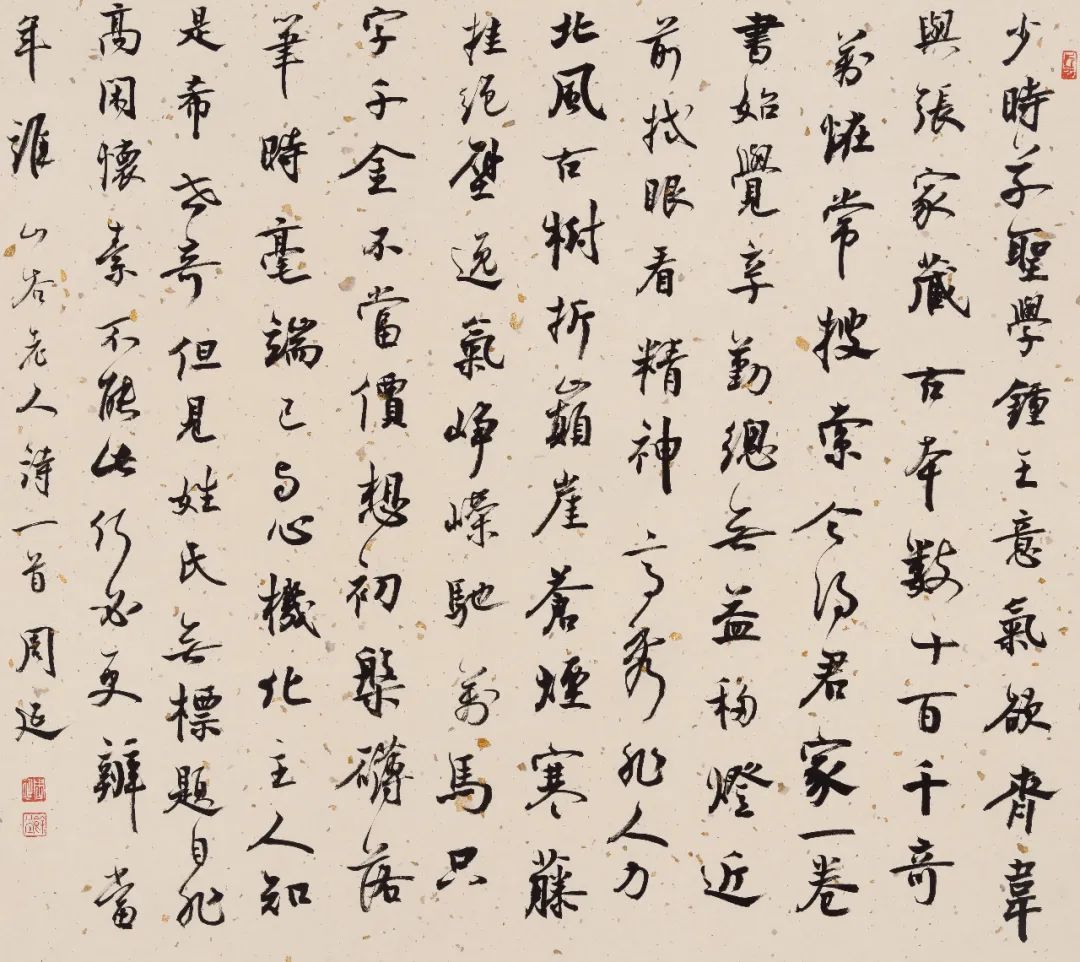 少時草聖學鍾王意氣欲齊韋
與張家藏古本數十百千奇
萬恠常搜索今得君家一卷
書始覺辛勤總無益移燈近
前拭眼看精神高秀非人力
北風古樹折巔崖蒼煙寒藤
挂絕壁逸氣崢嶸馳萬馬只
字千金不當價想初槃礴落
筆時毫端已與心機化主人知
是希世奇但見姓氏無標題自非
高閑懷素不能此行必更辯當
年誰 山谷老人詩一首 周延